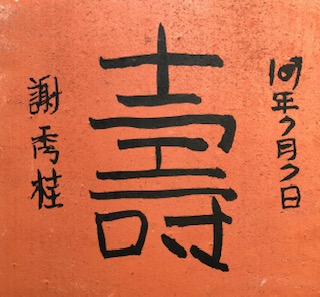 101年7月7日
壽
謝秀桂